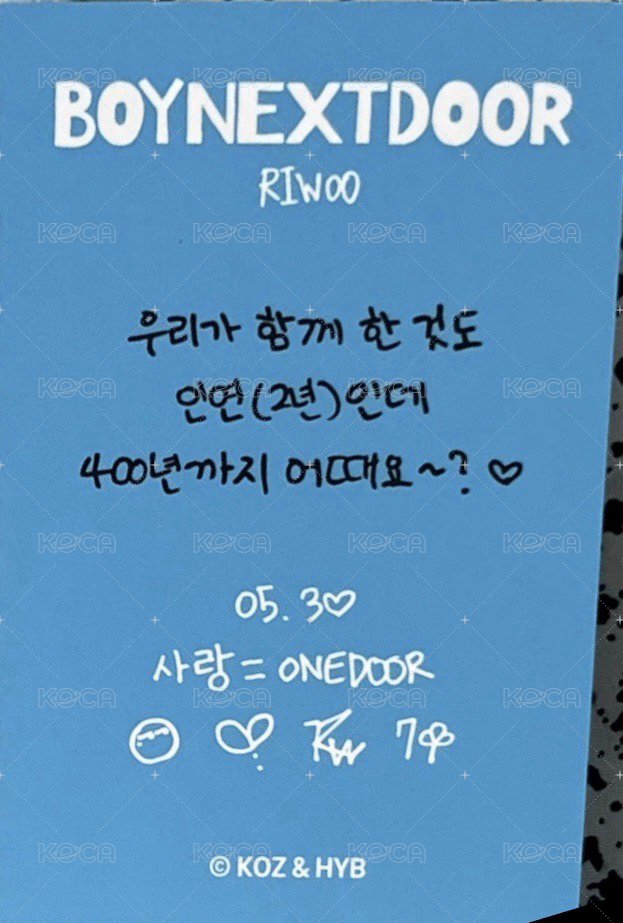 BOYNEXTDOOR
RIWOO
우리가 함께 한 것도
인연(2년)인데
400년까지 어때요~? ♡
05. 3♡
사랑 = ONEDOOR
RW 7
© KOZ & HYB
KOCA